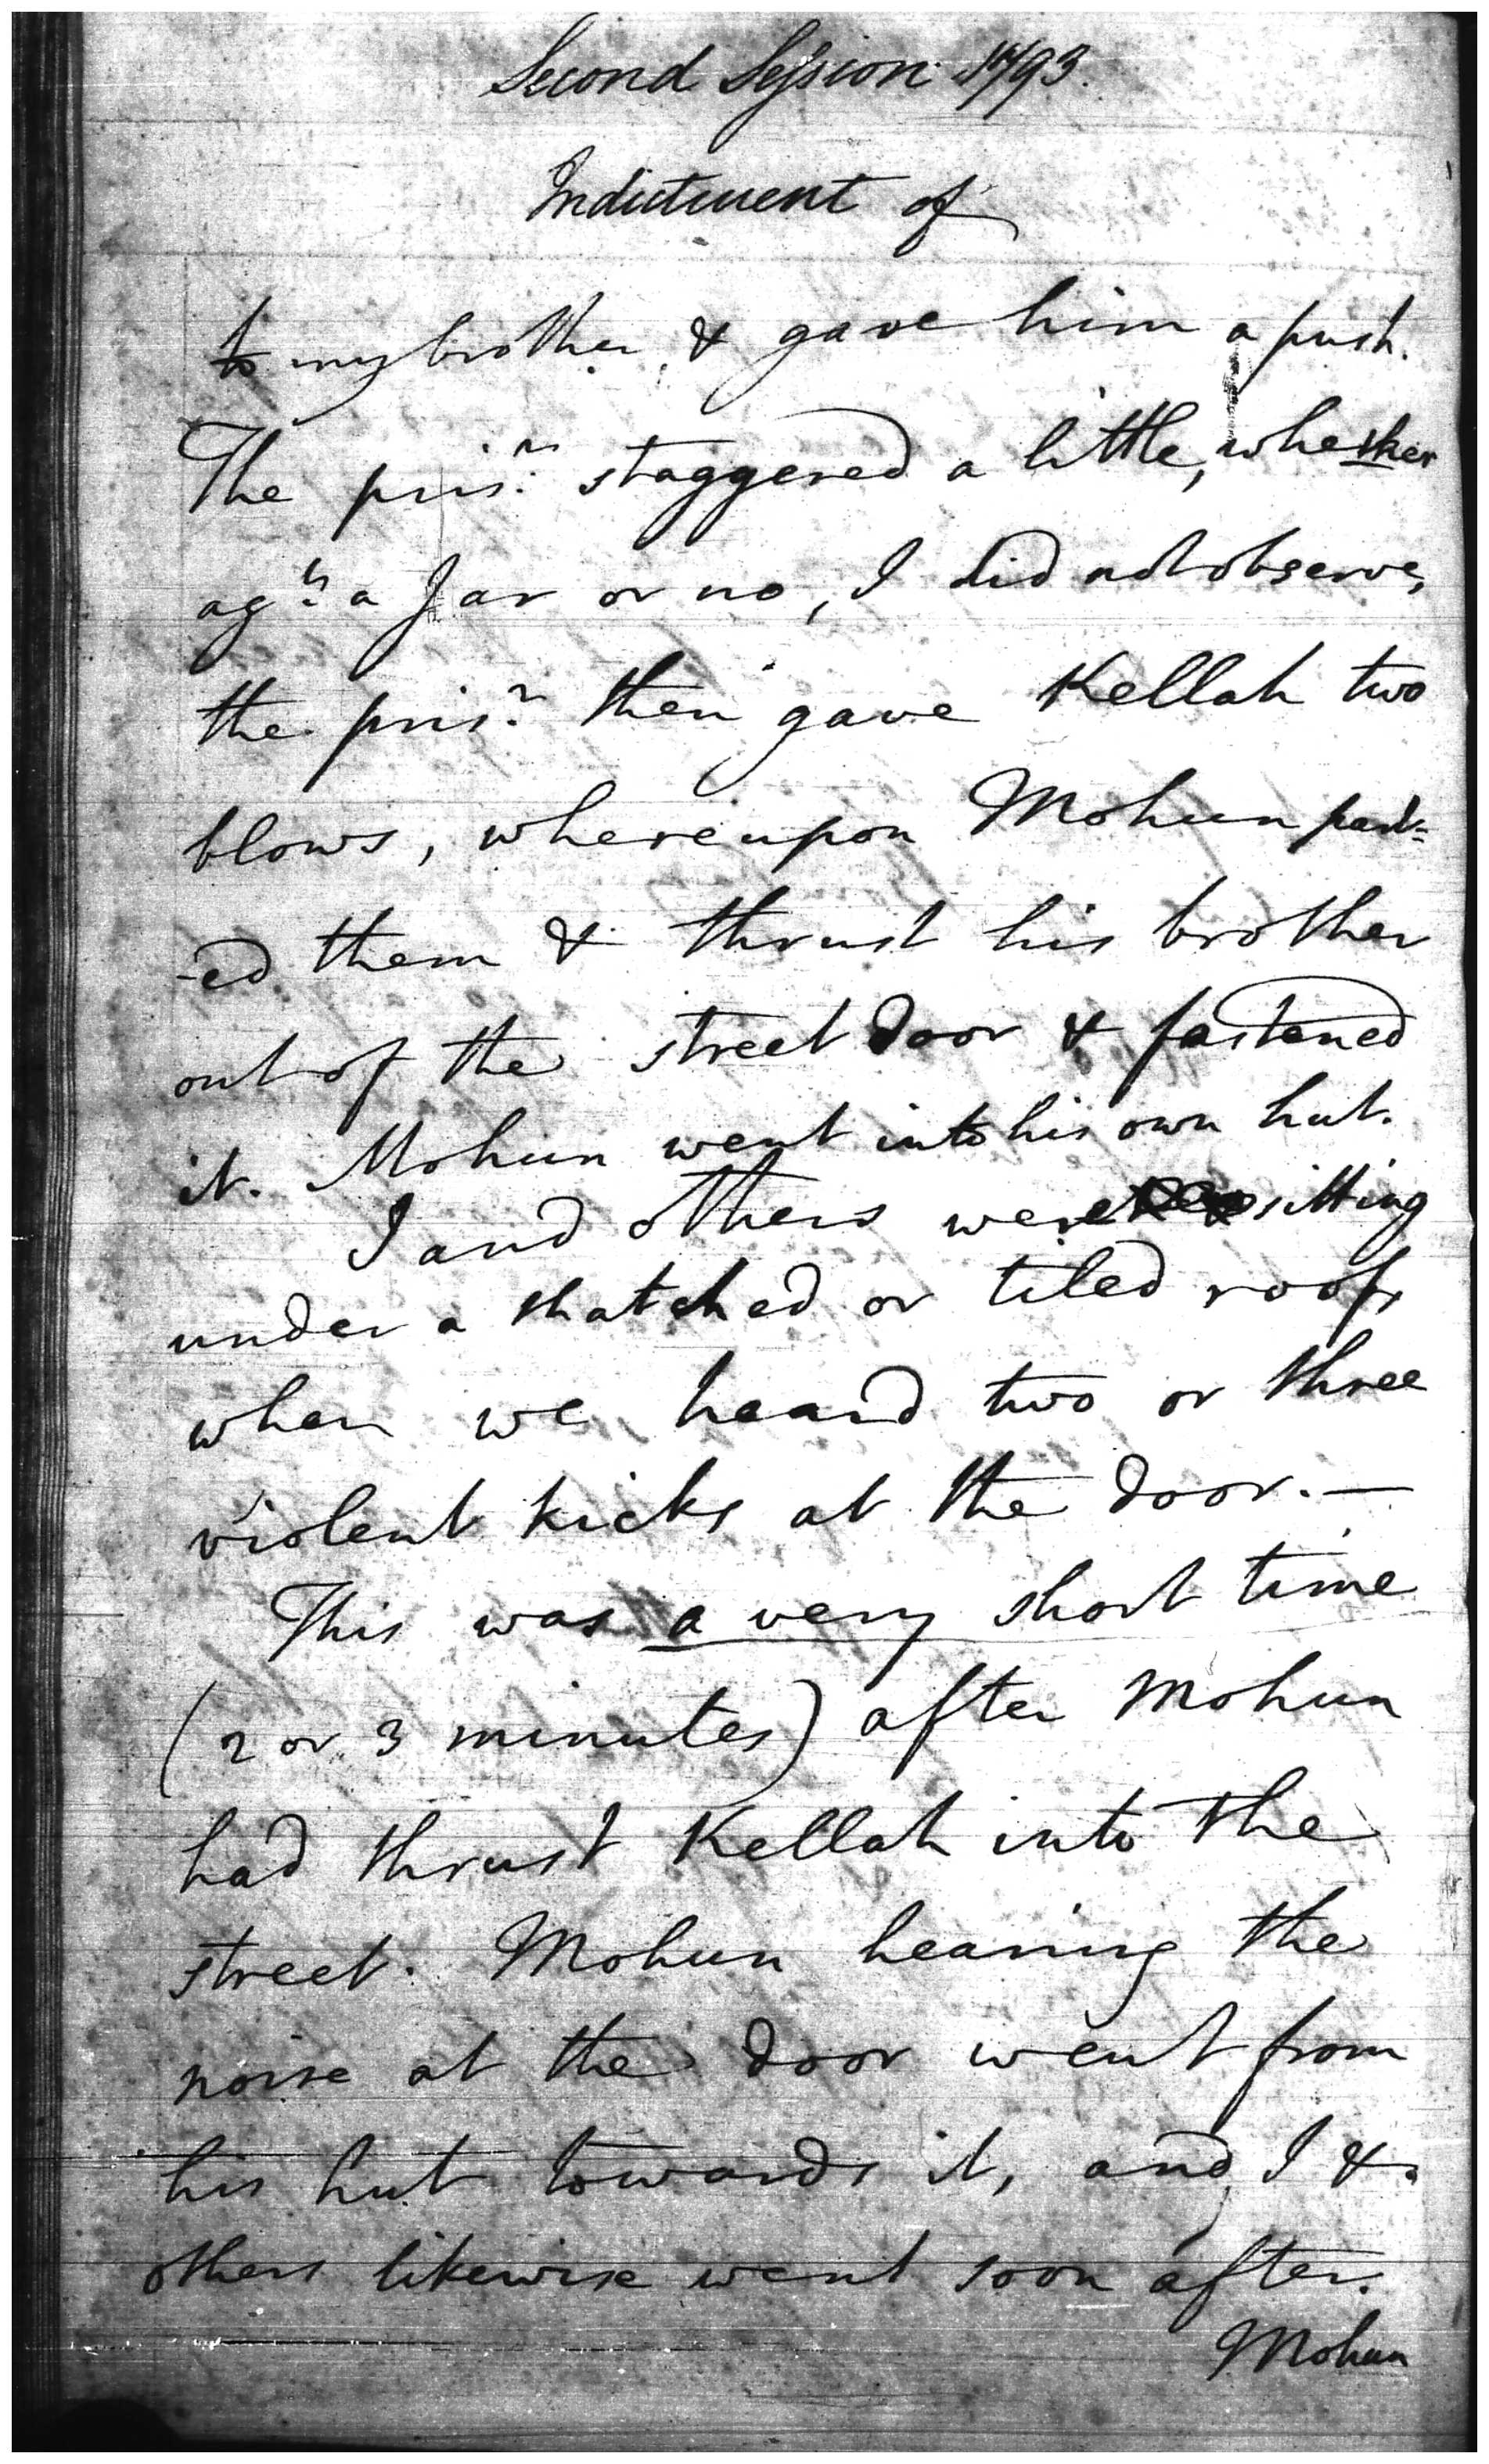 Second Session 1793.
Indictment of
to my brother, & gave him a push.
The pris.r staggered a little, whether
ag.t a Jar or no, I did not observe,
the pris.r then gave Kellah two
blows, whereupon Mohun part=
-ed them & thrust his brother
out of the street door & fastened
it. Mohun went into his own hut.
I and others were sitting
under a thatched or tiled roof,
when we heard two or three
violent kicks at the door. —
This was a very short time
(2 or 3 minutes) after Mohun
had thrust Kellah into the
street. Mohun hearing the
noise at the door went from
his hut towards it, and I &
others likewise went soon after.
Mohun